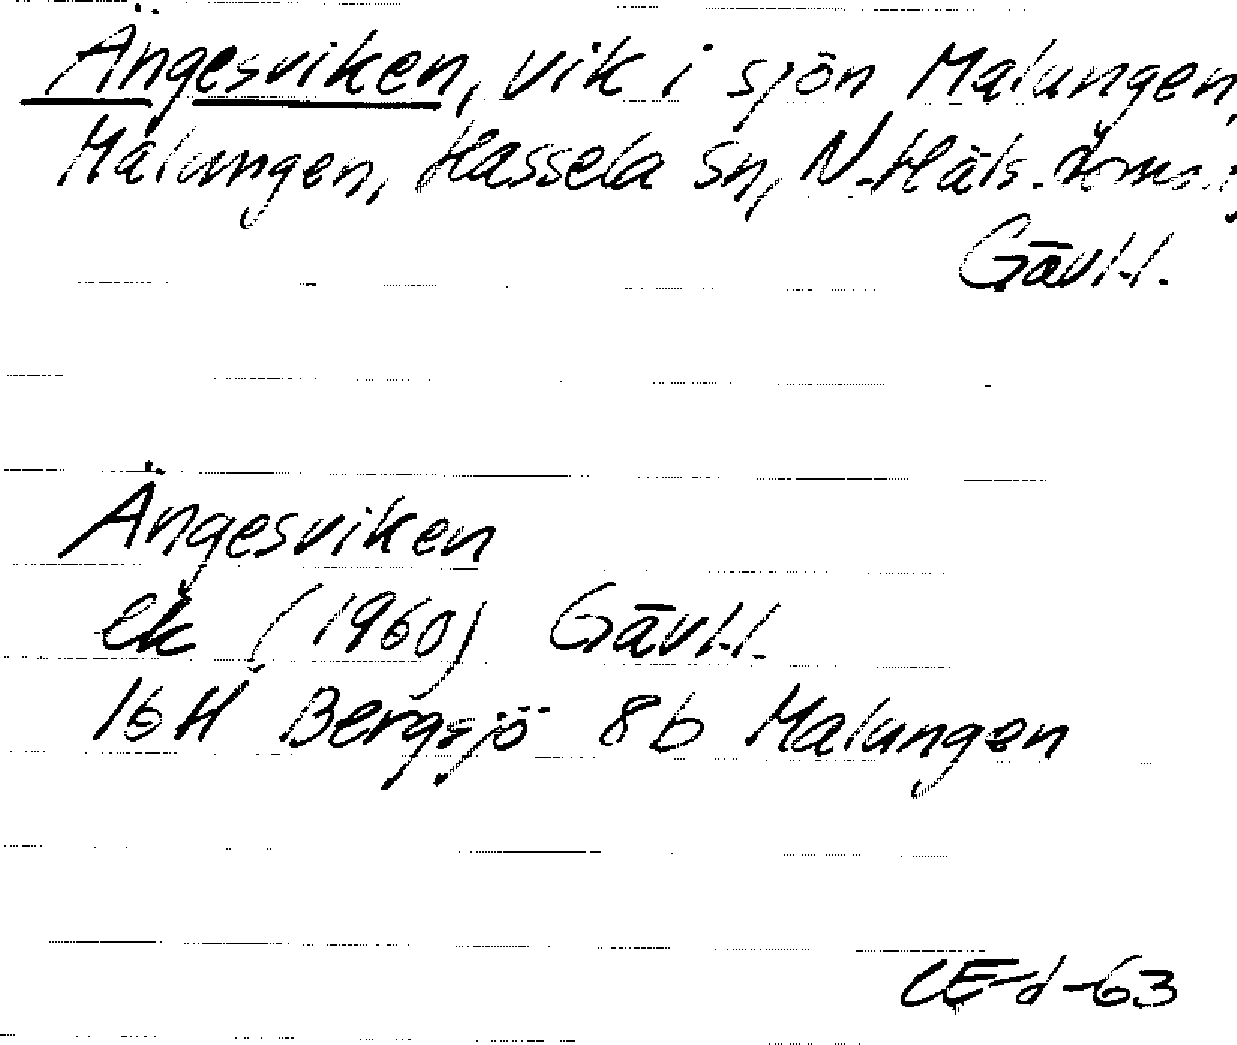 Ängesviken, vik i sjön Malungen,
Malungen, Hassela sn, N. Häls. doms.;
Gävl.l.
Ängesviken
ek (1960) Gävl.l.
16H Bergsjö 8b Malungen
CE-d-63